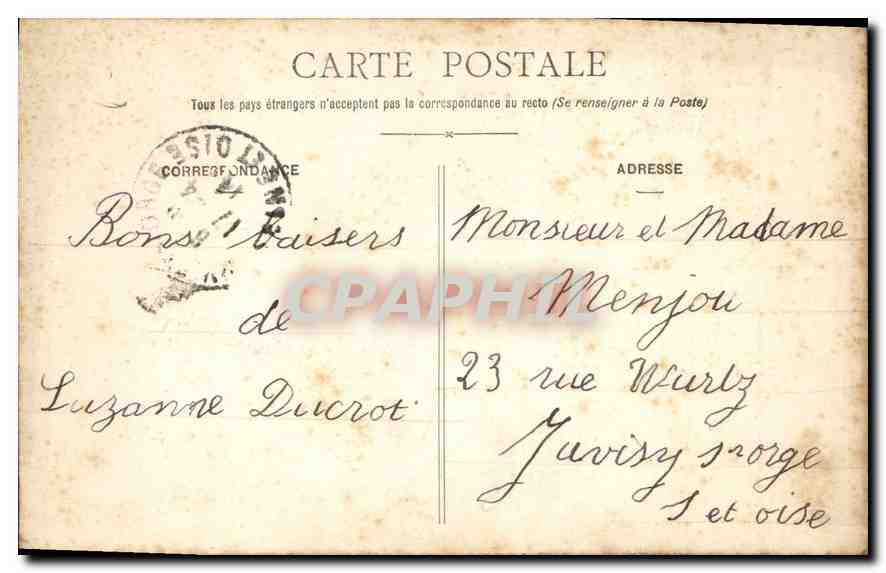 CARTE POSTALE
Tous les pays étrangers n'acceptent pas la correspondance au recto (Se renseigner à la Poste)
CORRESPONDANCE
Bons baisers
de
Suzanne Ducrot
ADRESSE
Monsieur et Madame
Menjou
23 rue Wurtz
Juvisy s orge
S et oise
CPAPHIL